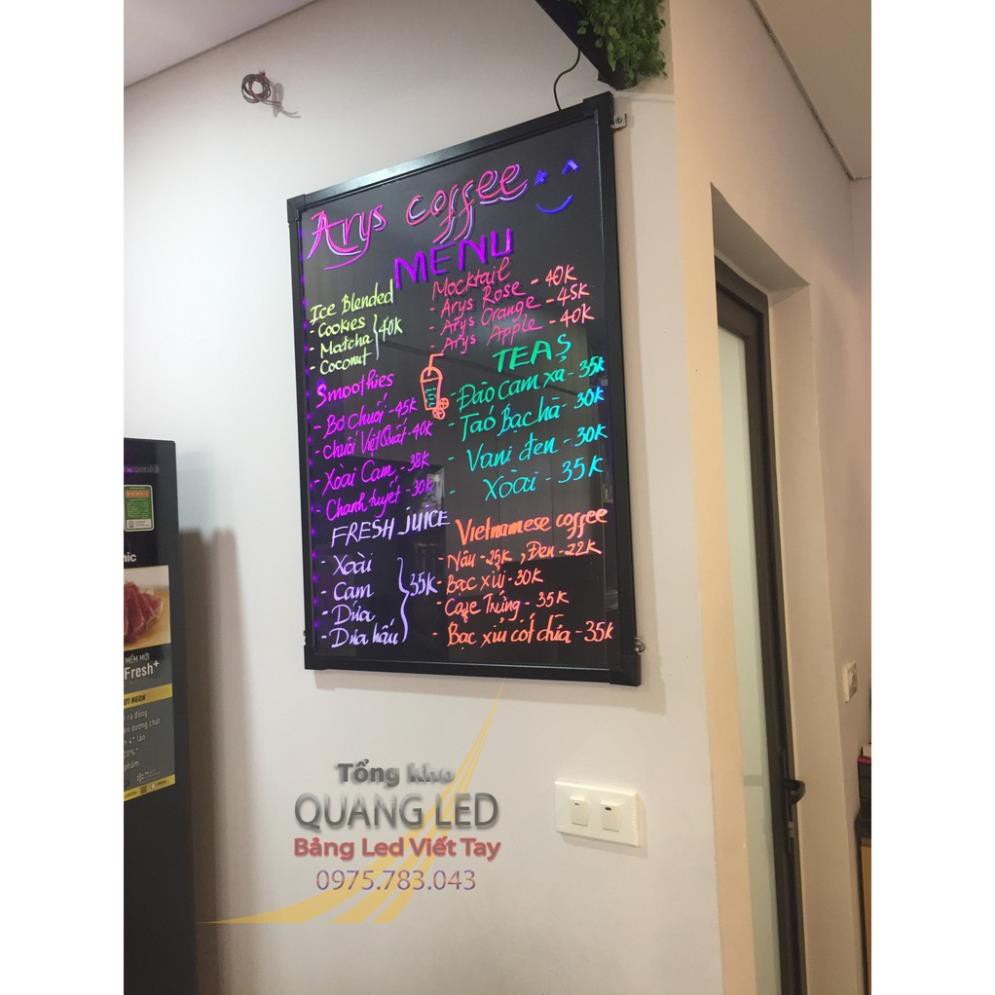 Arys coffee
MENU
Ice Blended
- Cookies
- Matcha
- Coconut
40K
Mocktail
- Arys Rose - 40K
- Arys Orange - 45K
- Arys Apple - 40K
Smoothies
- Bơ Chuối - 45K
- Chuối Việt Quất - 40K
- Xoài Cam - 38K
- Chanh tuyết - 30K
TEAS
- Đào cam xả - 35K
- Táo Bạc hà - 30K
- Vani đen - 30K
- Xoài - 35K
FRESH JUICE
- Xoài
- Cam
- Dứa
- Dưa hấu
35K
Vietnamese coffee
- Nâu - 25K, Đen - 22K
- Bạc xỉu - 30K
- Cafe Trứng - 35K
- Bạc xỉu cốt dừa - 35K
nic
MỀM MỚI
Fresh+
Tổng kho
QUANG LED
Bảng Led Viết Tay
0975.783.043